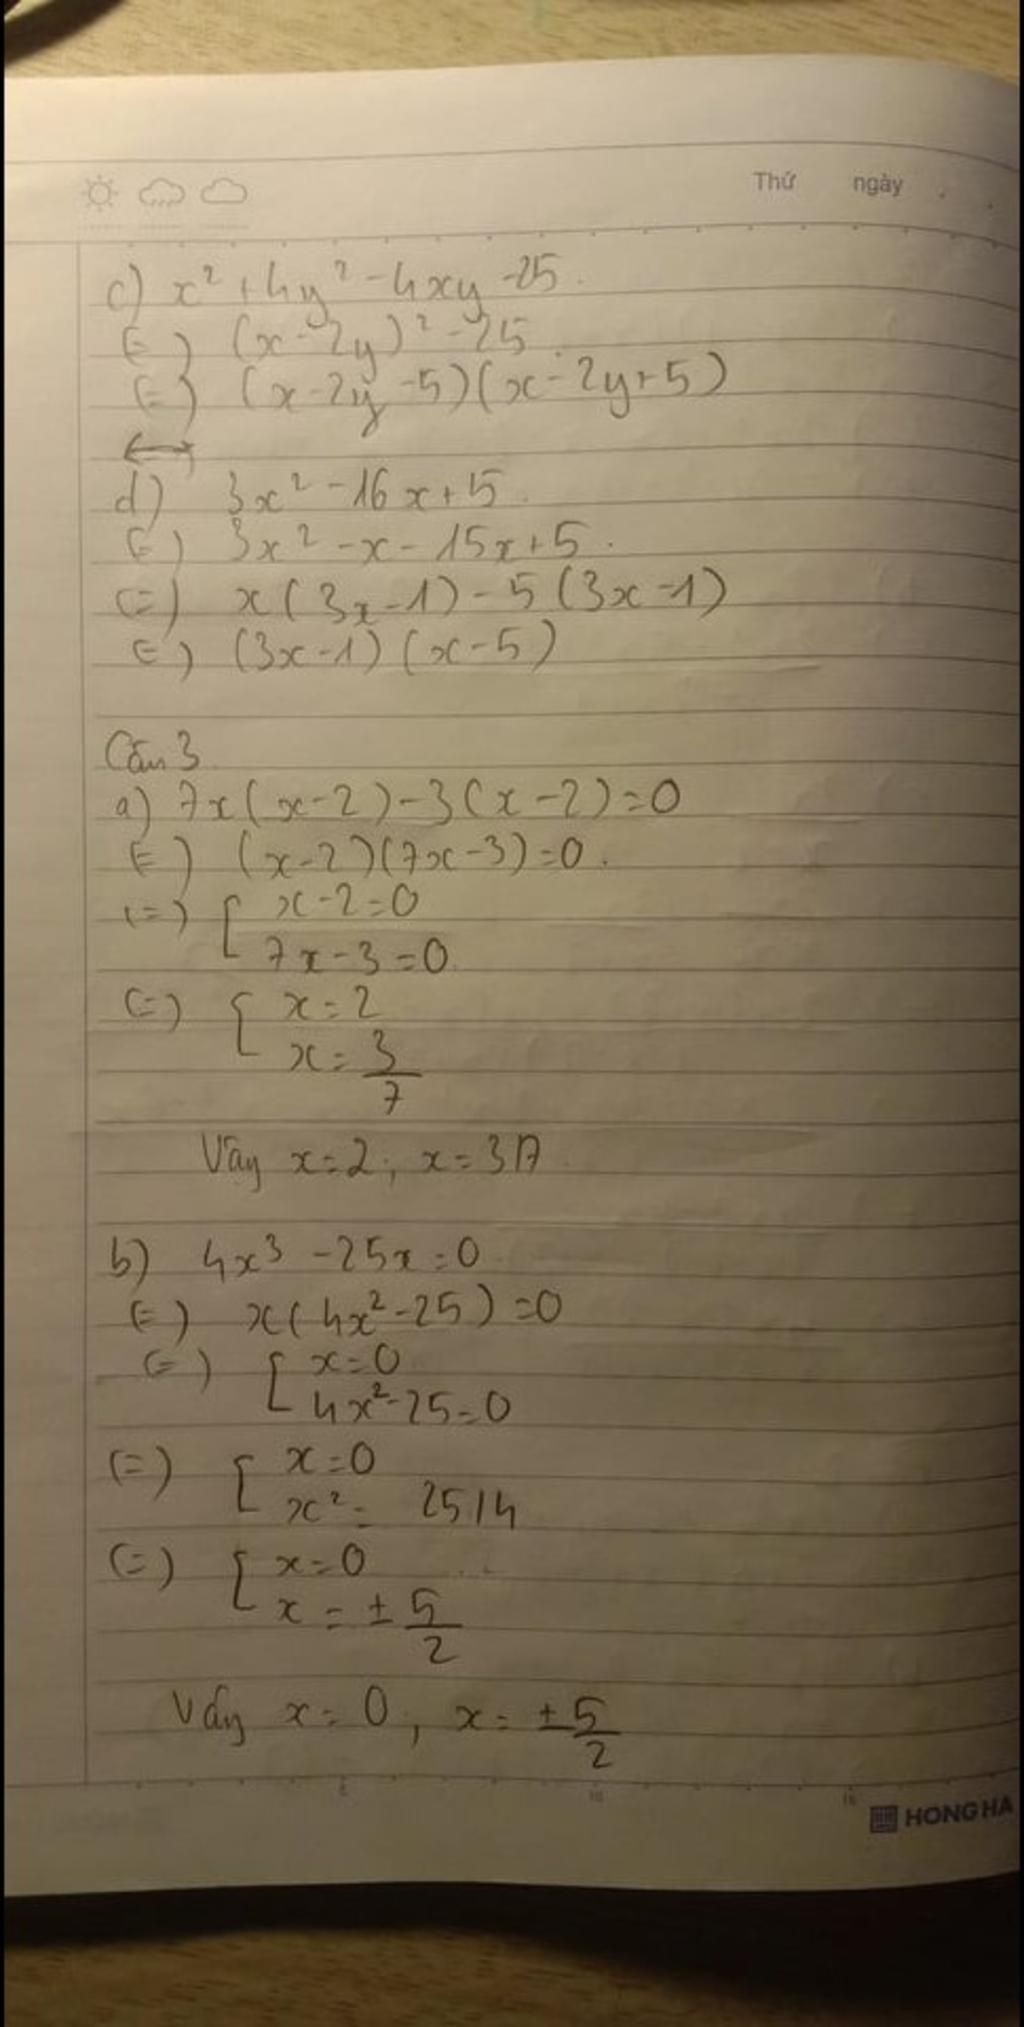 Thứ ngày
c) x² + 4y² - 4xy - 25.
(=) (x - 2y)² - 25
(=) (x - 2y - 5)(x - 2y + 5)
d) 3x² - 16x + 5.
(=) 3x² - x - 15x + 5.
(=) x(3x - 1) - 5(3x - 1)
(=) (3x - 1)(x - 5)
Câu 3
a) 7x(x - 2) - 3(x - 2) = 0
(=) (x - 2)(7x - 3) = 0.
(=) [ x - 2 = 0
7x - 3 = 0
(=) [ x = 2
x = 3/7
Vậy x = 2, x = 3/7
b) 4x³ - 25x = 0
(=) x(4x² - 25) = 0
(=) [ x = 0
4x² - 25 = 0
(=) [ x = 0
x² = 25/4
(=) [ x = 0
x = ± 5/2
Vậy x = 0, x = ± 5/2
5 10 15
HONG HA